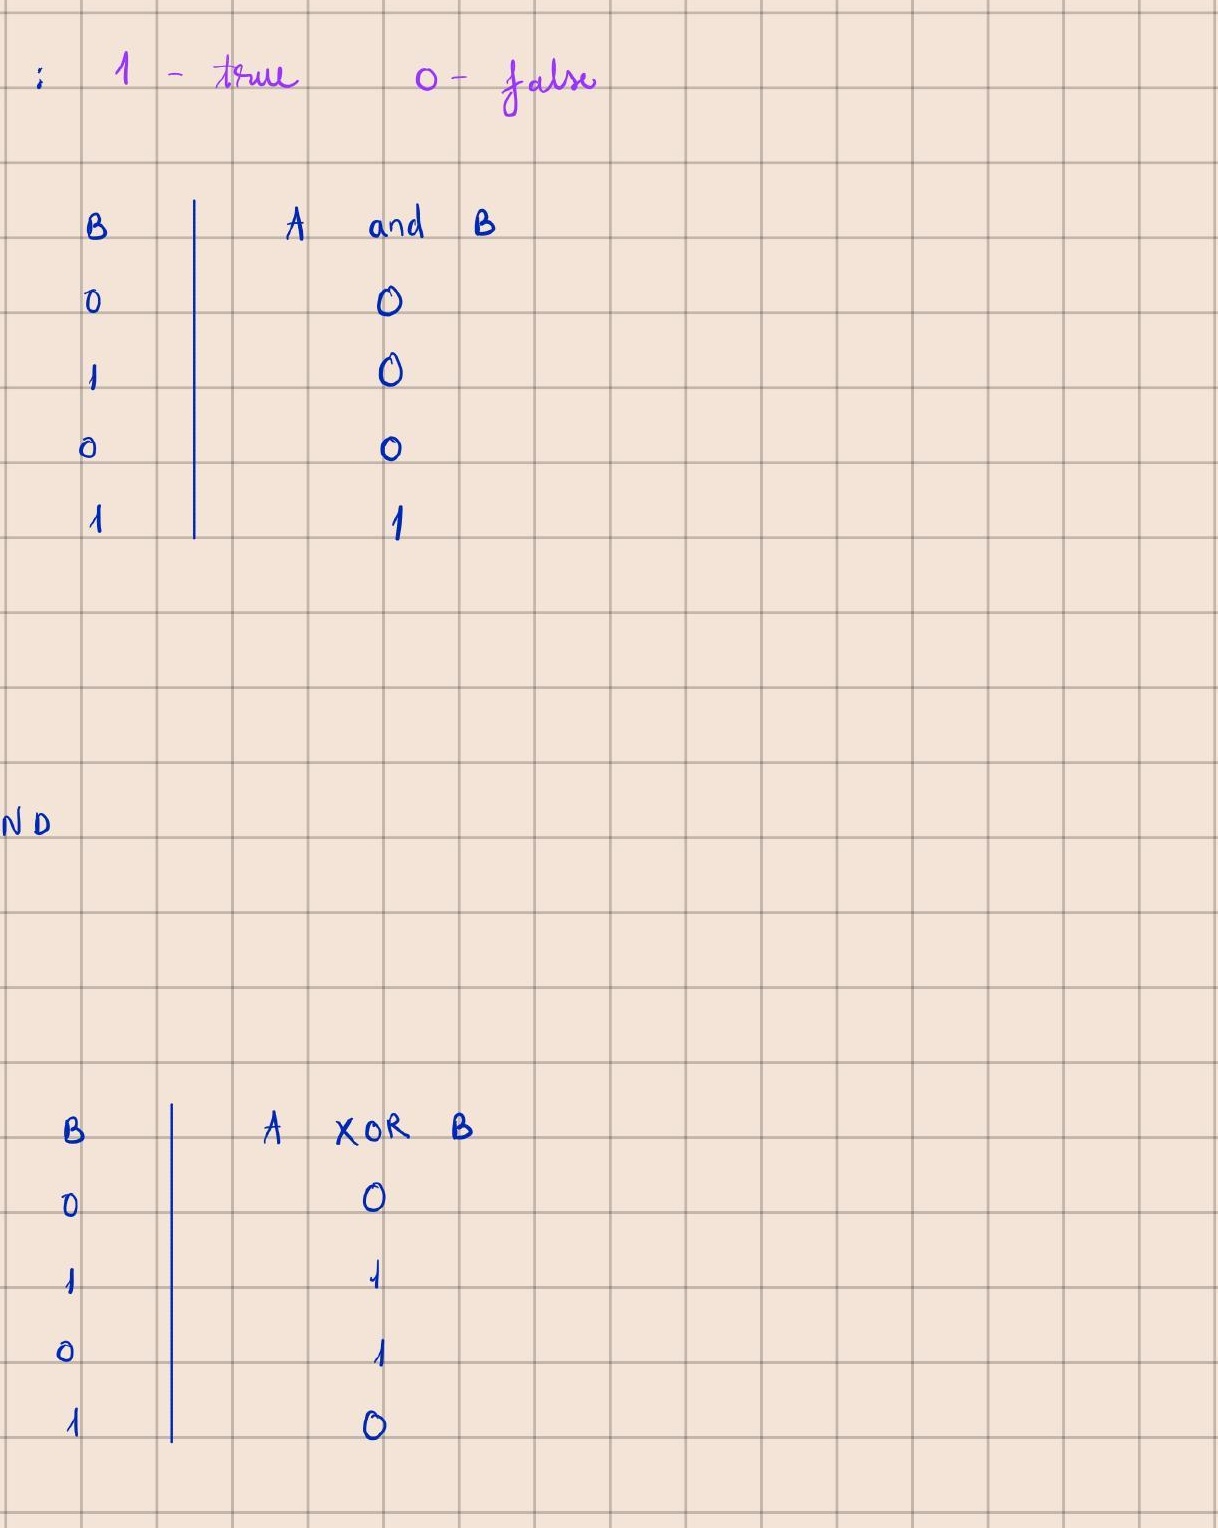 : 1 - true 0 - false
B A and B
0 0
1 0
0 0
1 1
ND
B A XOR B
0 0
1 1
0 1
1 0